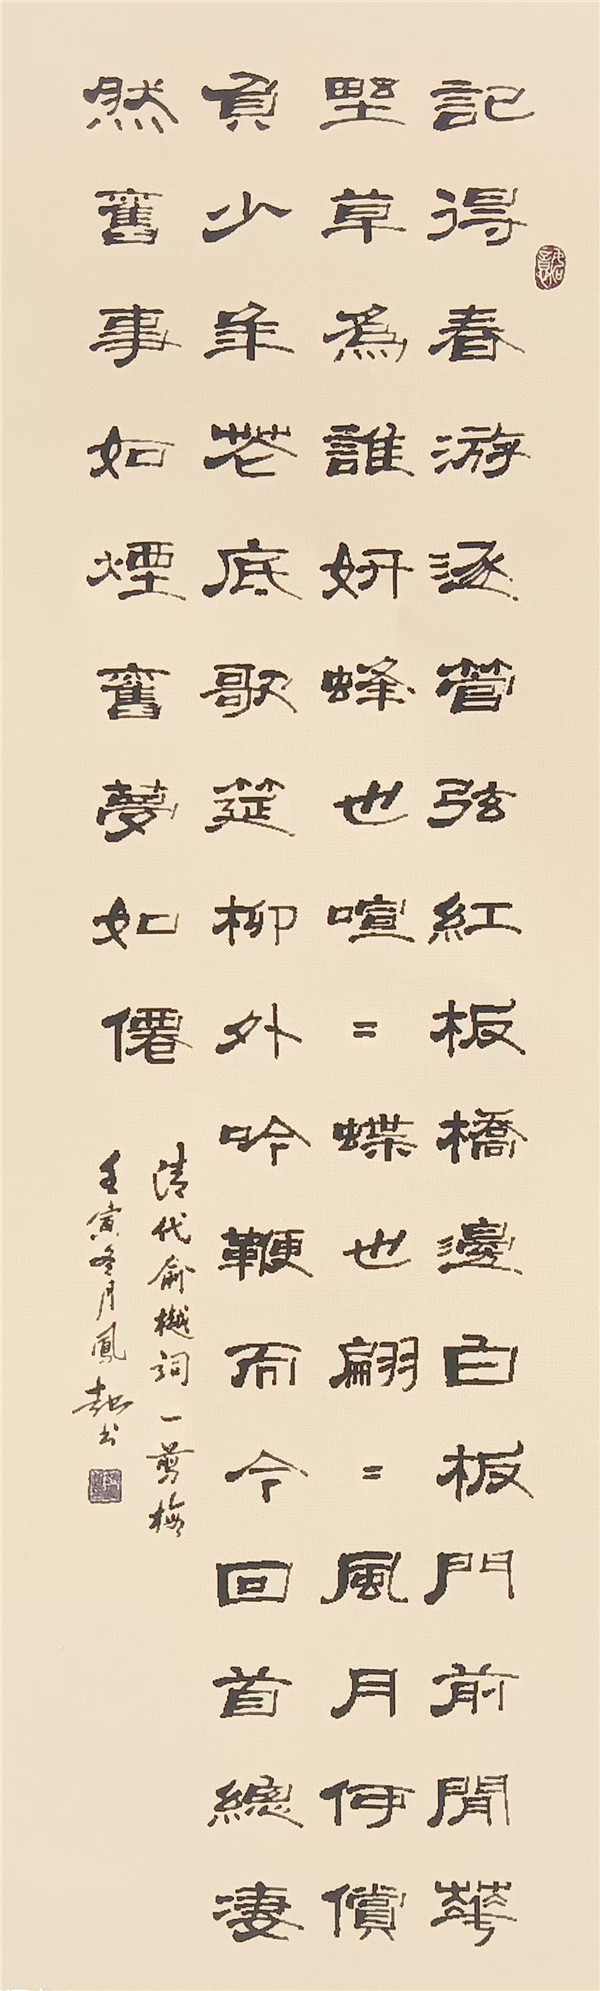 記得春游逐管弦紅板橋邊白板門前閒華
野草為誰妍蜂也喧=蝶也翩=風月何償
負少年花底歌筵柳外吟鞭而今回首總淒
然舊事如煙舊夢如僊
清代俞樾詞一剪梅
壬寅冬月鳳起書